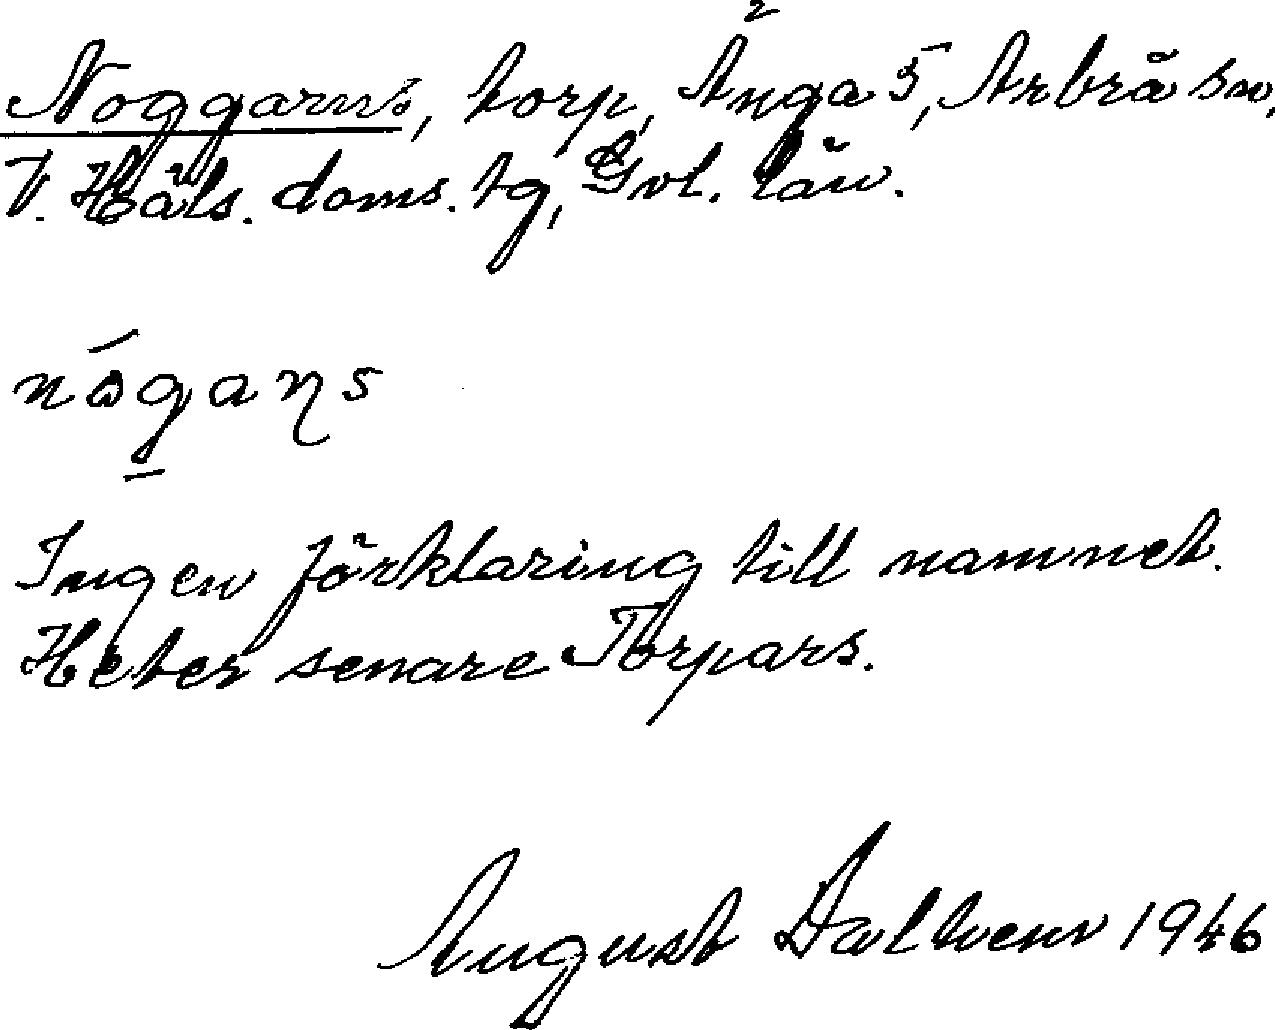 Noggarns, torp, Änga 5, Arbrå sn,
V. Häls. doms. tg, Gvl. län.
nógaɳs
Ingen förklaring till namnet.
Heter senare Torpars.
August Dalkvern 1946